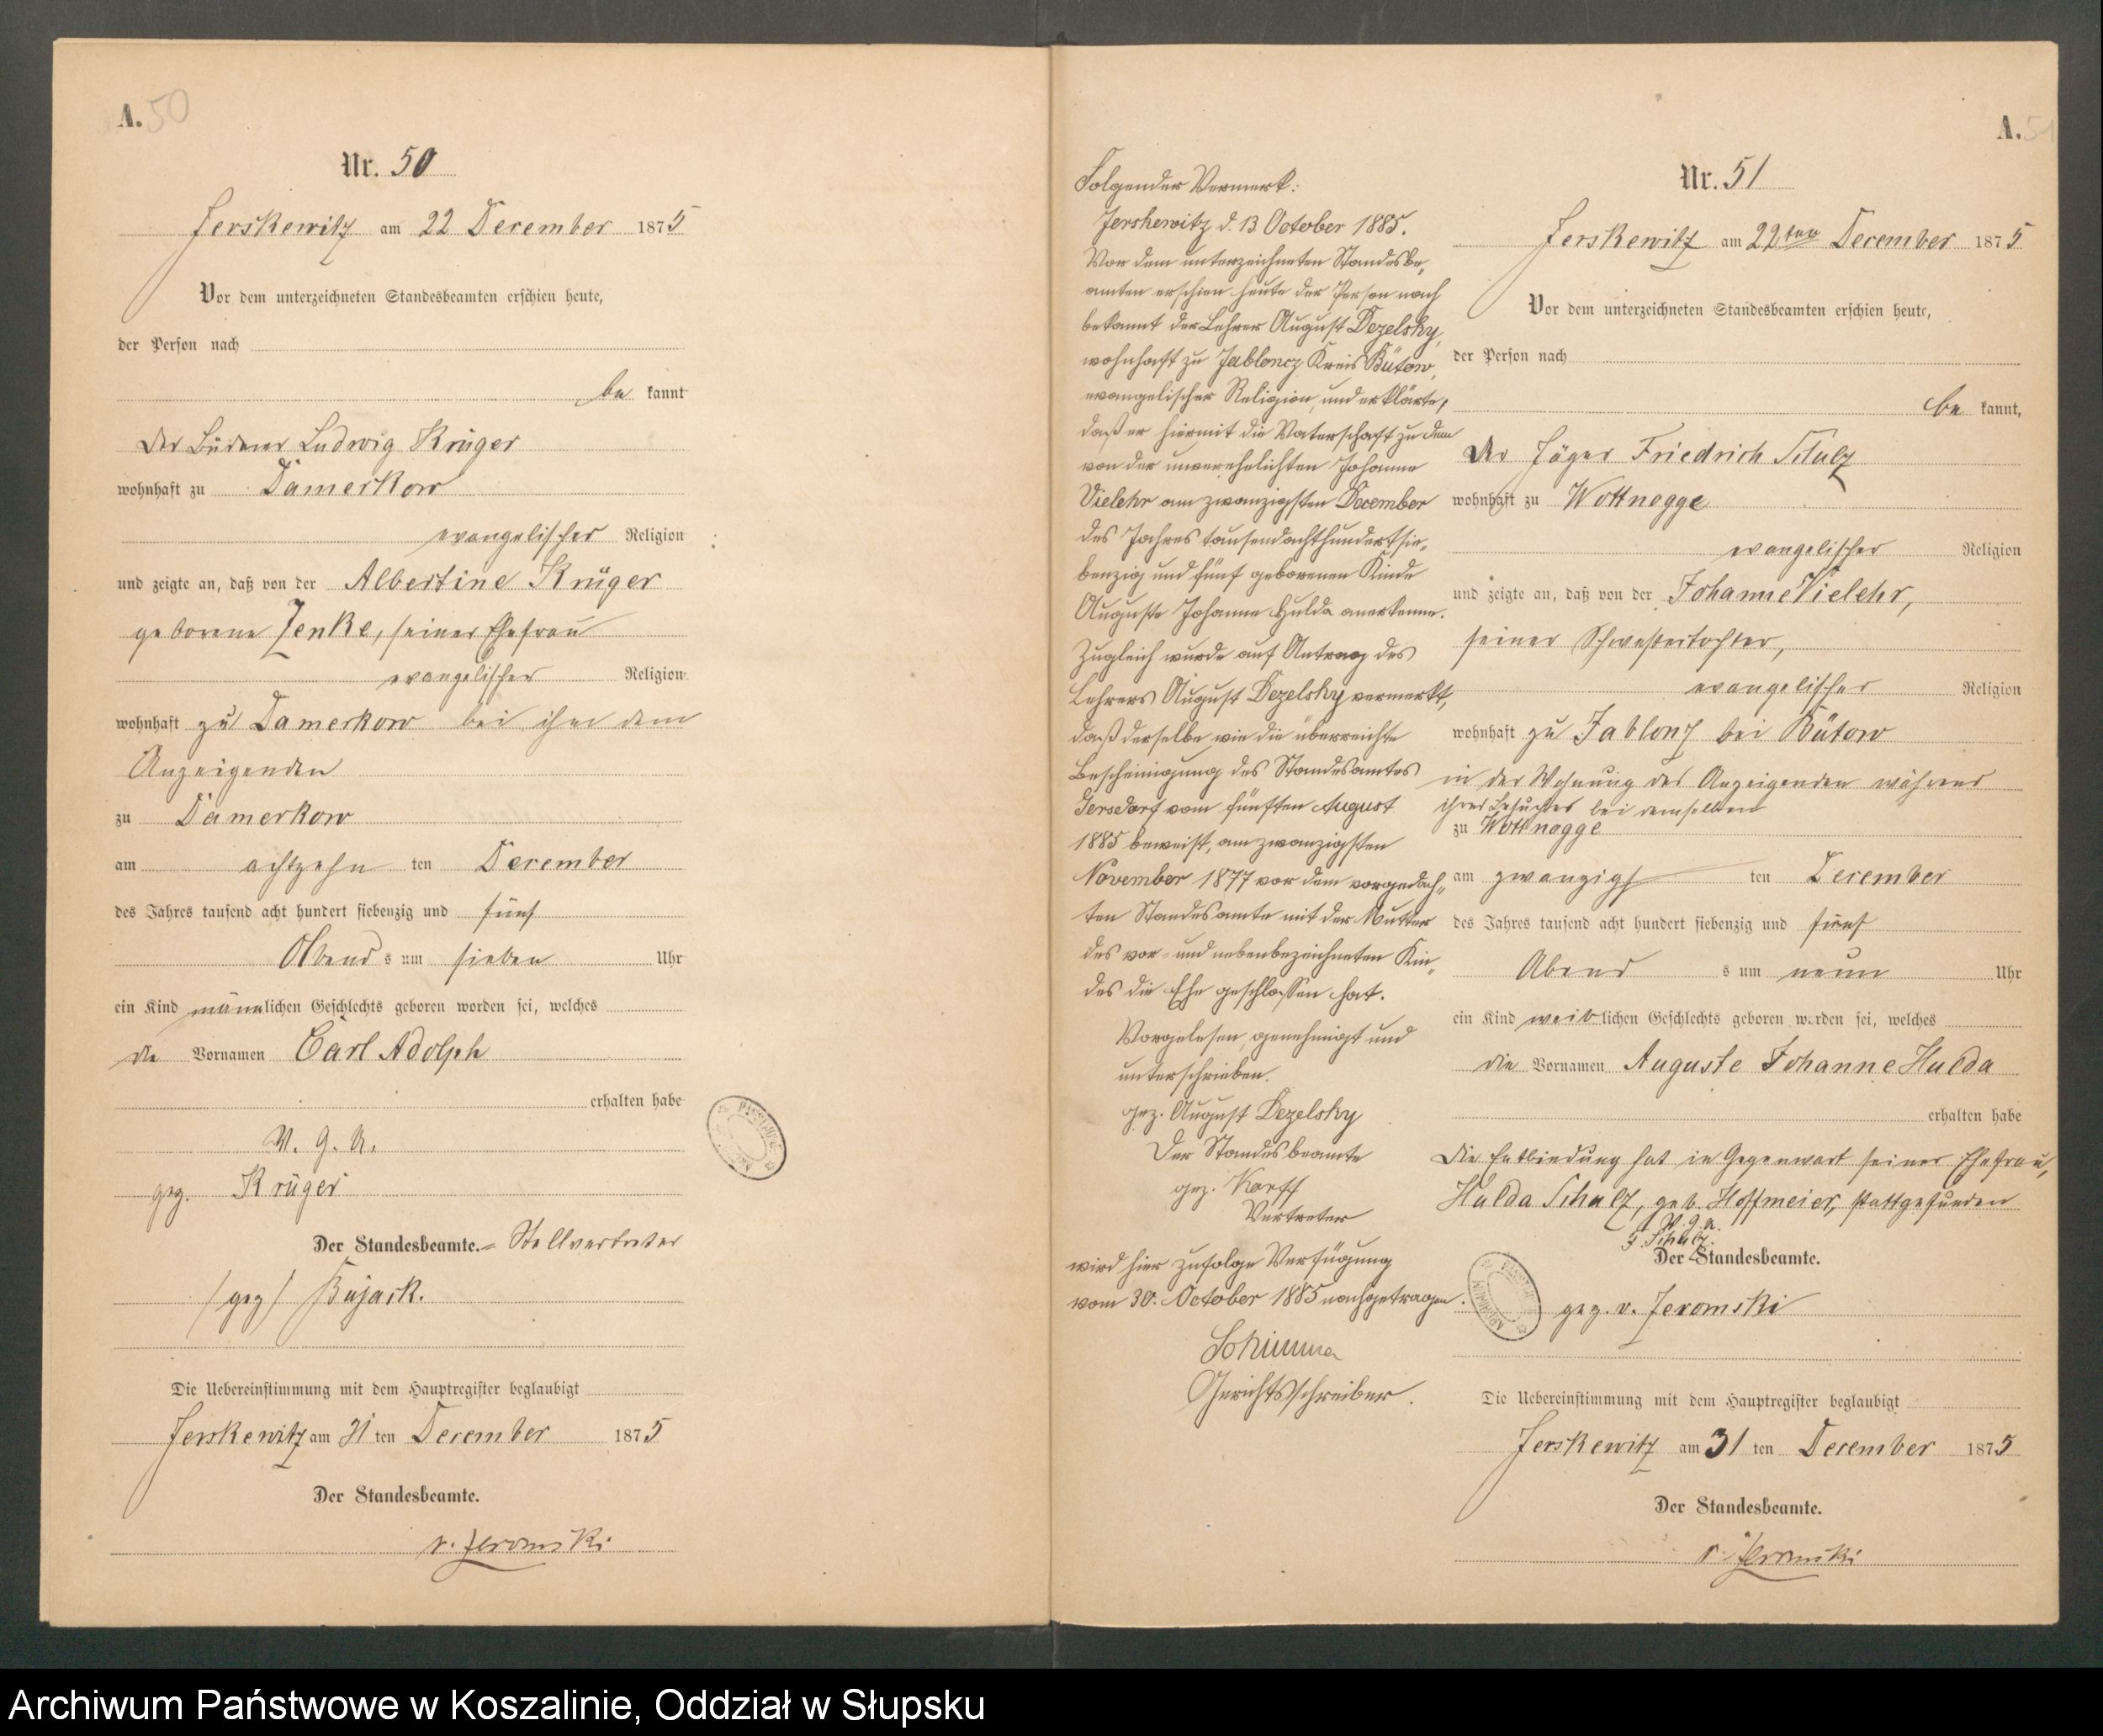 A. 50
Nr. 50
Jerskewitz am 22 December 1875
Vor dem unterzeichneten Standesbeamten erschien heute,
der Person nach
be kannt
der Büdner Ludwig Krüger
wohnhaft zu Damerkow
evangelischer Religion
und zeigte an, daß von der Albertine Krüger
geborene Jenke, seiner Ehefrau
evangelischer Religion
wohnhaft zu Damerkow bei ihm dem
Anzeigenden
zu Damerkow
am achtzehn ten December
des Jahres tausend acht hundert siebenzig und fünf
Abend s um sieben Uhr
ein Kind männlichen Geschlechts geboren worden sei, welches
die Vornamen Carl Adolph
erhalten habe
V. g. u.
gez. Krüger
Der Standesbeamte. Stellvertreter
/gez/ Bujack.
Die Uebereinstimmung mit dem Hauptregister beglaubigt
Jerskewitz am 31 ten December 1875
Der Standesbeamte.
v. Jeromski
Folgender Vermerk:
Jerskewitz d. 13 October 1885.
Vor dem unterzeichneten Standesbe„
amten erschien heute der Person nach
bekannt der Lehrer August Dezelsky,
wohnhaft zu Jabloncz Kreis Bütow,
evangelischer Religion, und erklärte,
daß er hiermit die Vaterschaft zu dem
von der unverehelichten Johanne
Vielehr am zwanzigsten December
des Jahres tausendachthundertsie„
benzig und fünf geborenen Kinde
Auguste Johanne Hulda anerkenne.
Zugleich wurde auf Antrag des
Lehrers August Dezelsky vermerkt,
daß derselbe, wie die überreichte
Bescheinigung des Standesamtes
Gersdorf vom fünften August
1885 beweist, am zwanzigsten
November 1877 vor dem vorgedach„
ten Standesamte mit der Mutter
des vor- und nebenbezeichneten Kin„
des die Ehe geschlossen hat.
Vorgelesen, genehmigt und
unterschrieben.
gez. August Dezelsky
Der Standesbeamte
gez. Korff
Vertreter
wird hier zufolge Verfügung
vom 30. October 1885 nachgetragen.
Gerichtsschreiber.
A. 51
Nr. 51
Jerskewitz am 22ten December 1875
Vor dem unterzeichneten Standesbeamten erschien heute,
der Person nach
be kannt,
der Jäger Friedrich Schulz
wohnhaft zu Wottnogge
evangelischer Religion
und zeigte an, daß von der Johanne Vielehr,
seiner Schwestertochter,
evangelischer Religion
wohnhaft zu Jablonz bei Bütow
in der Wohnung des Anzeigenden während
ihres Besuches bei demselben
zu Wottnogge
am zwanzigs ten December
des Jahres tausend acht hundert siebenzig und fünf
Abend s um neun Uhr
ein Kind weiblichen Geschlechts geboren worden sei, welches
die Vornamen Auguste Johanne Hulda
erhalten habe
Die Entbindung hat in Gegenwart seiner Ehefrau,
Hulda Schulz, geb. Hoffmeier, stattgefunden
V. g. u.
F. Schulz.
Der Standesbeamte.
gez. v. Jeromski
Die Uebereinstimmung mit dem Hauptregister beglaubigt
Jerskewitz am 31 ten December 1875
Der Standesbeamte.
v. Jeromski
Archiwum Państwowe w Koszalinie, Oddział w Słupsku